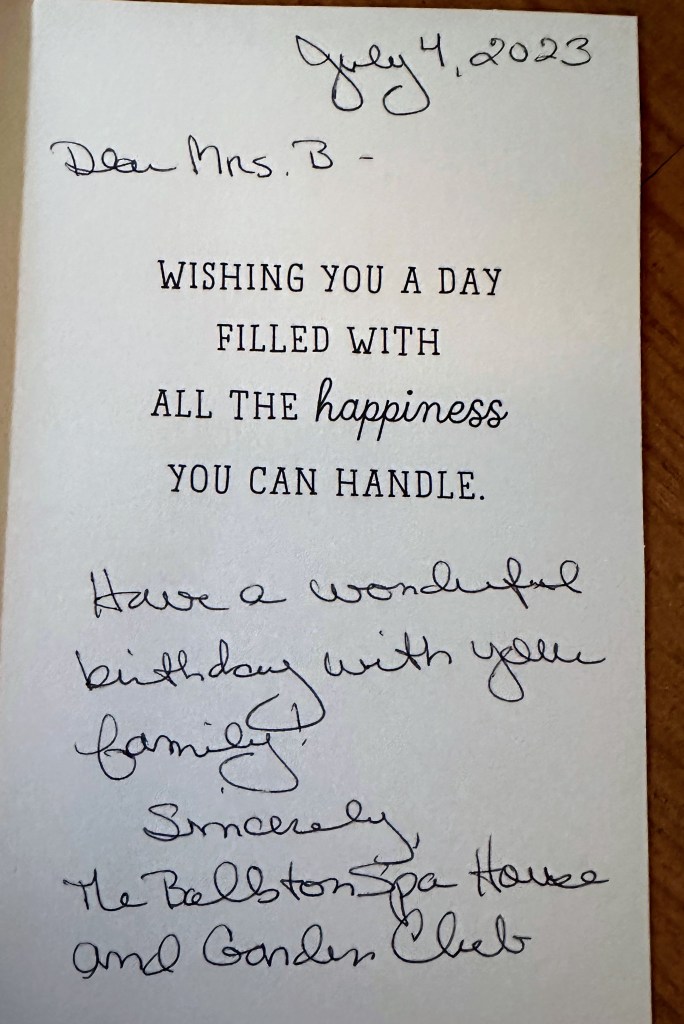 July 4, 2023
Dear Mrs. B -
WISHING YOU A DAY
FILLED WITH
ALL THE happiness
YOU CAN HANDLE.
Have a wonderful
birthday with your
family!
Sincerely,
The Ballston Spa House
and Garden Club